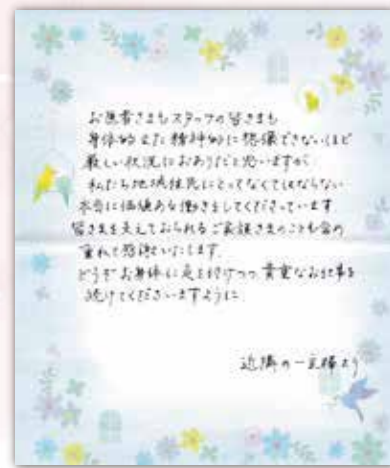 お医者さまもスタッフの皆さまも
身体的また精神的に想像できないほど
厳しい状況におありだと思いますが
私たち地域住民にとってなくてはならない
本当に価値ある働きをしてくださっています
皆さまを支えておられるご家族さまのことも含め
重ねて感謝いたします。
どうぞお身体に気を付けつつ、貴重なお仕事を
続けてくださいますように
近隣の一主婦より